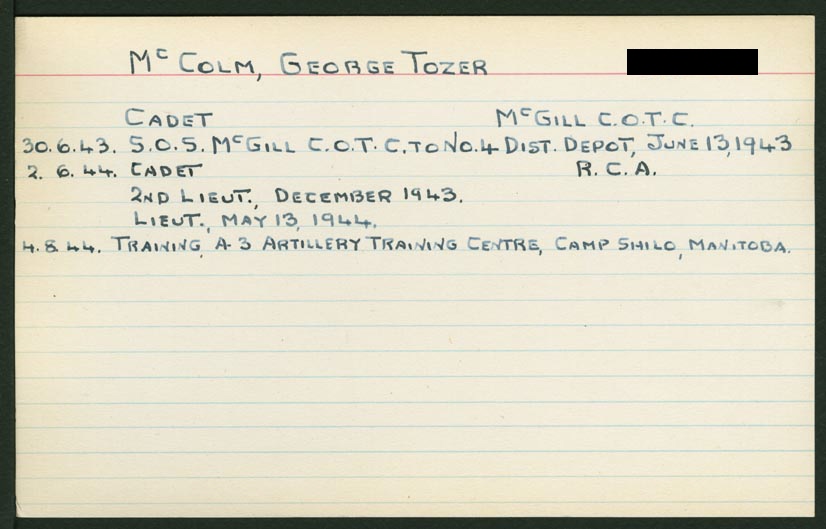 McCOLM, GEORGE TOZER
CADET McGILL C.O.T.C.
30.6.43. S.O.S. McGILL C.O.T.C. TO NO.4 DIST. DEPOT, JUNE 13, 1943
2. 6. 44. CADET R.C.A.
2ND LIEUT., DECEMBER 1943.
LIEUT., MAY 13, 1944.
4.8.44. TRAINING, A-3 ARTILLERY TRAINING CENTRE, CAMP SHILO, MANITOBA.